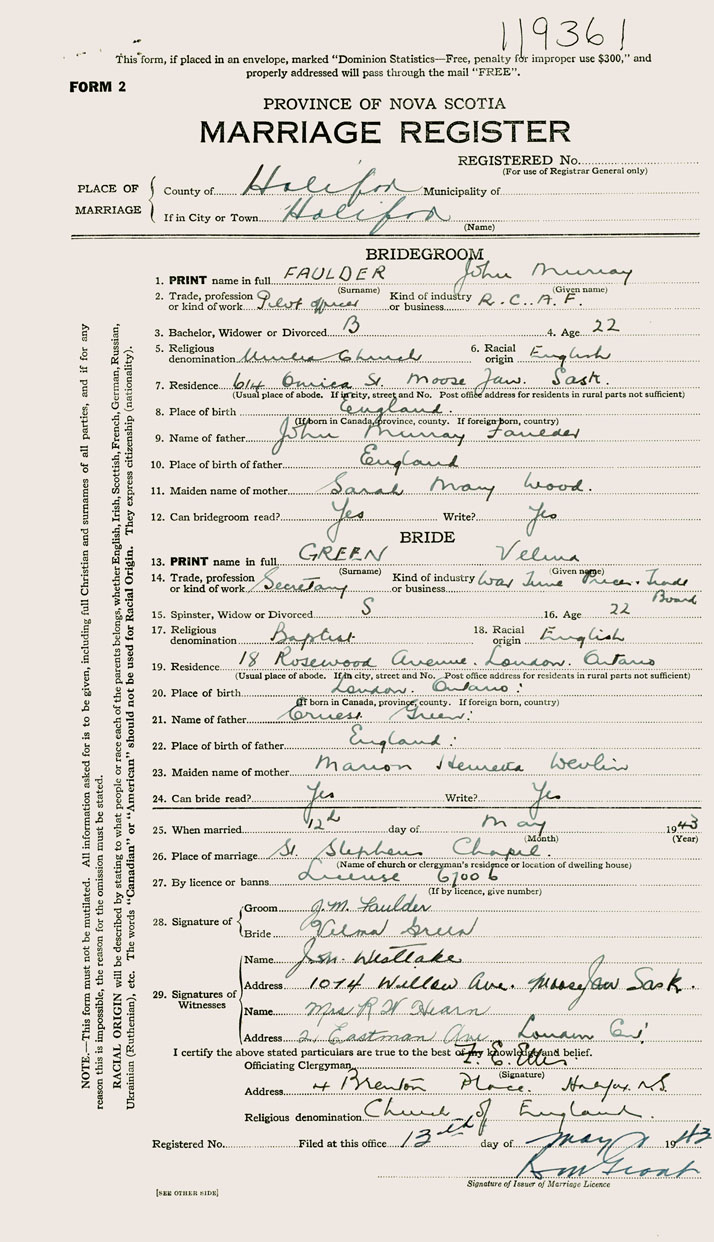 119361
This form, if placed in an envelope, marked "Dominion Statistics—Free, penalty for improper use $300," and
properly addressed will pass through the mail "FREE".
FORM 2
PROVINCE OF NOVA SCOTIA
MARRIAGE REGISTER
REGISTERED No.
(For use of Registrar General only)
PLACE OF MARRIAGE
County of Halifax Municipality of
If in City or Town Halifax
(Name)
BRIDEGROOM
1. PRINT name in full FAULDER John Murray
(Surname) (Given name)
2. Trade, profession or kind of work Pilot officer Kind of industry or business R.C.A.F.
3. Bachelor, Widower or Divorced B 4. Age 22
5. Religious denomination United Church 6. Racial origin English
7. Residence 614 St. Moose Jaw. Sask.
(Usual place of abode. If in city, street and No. Post office address for residents in rural parts not sufficient)
8. Place of birth England.
(If born in Canada, province, county. If foreign born, country)
9. Name of father John Murray Faulder
10. Place of birth of father England
11. Maiden name of mother Sarah Mary Wood.
12. Can bridegroom read? Yes Write? Yes
BRIDE
13. PRINT name in full GREEN Velma
(Surname) (Given name)
14. Trade, profession or kind of work Secretary Kind of industry or business War Time Prices. Trade Board
15. Spinster, Widow or Divorced S 16. Age 22
17. Religious denomination Baptist 18. Racial origin English
19. Residence 18 Rosewood Avenue. London. Ontario
(Usual place of abode. If in city, street and No. Post office address for residents in rural parts not sufficient)
20. Place of birth London. Ontario.
(If born in Canada, province, county. If foreign born, country)
21. Name of father Ernest Green.
22. Place of birth of father England.
23. Maiden name of mother Marion Henrietta
24. Can bride read? Yes Write? Yes
25. When married 12th day of May 1943
(Month) (Year)
26. Place of marriage St. Stephens Chapel.
(Name of church or clergyman's residence or location of dwelling house)
27. By licence or banns License 67006
(If by licence, give number)
28. Signature of
Groom J.M. Faulder
Bride Velma Green
29. Signatures of Witnesses
Name Westlake
Address 1074 Willow Ave. Moose Jaw Sask.
Name Mrs R W Hearn
Address 2 Eastman Ave London Ont
I certify the above stated particulars are true to the best of my knowledge and belief.
Officiating Clergyman F. E. Ellis
(Signature)
Address 4 Brenton Place. Halifax. N.S.
Religious denomination Church of England.
Registered No. Filed at this office 13th day of May 1943
Signature of Issuer of Marriage Licence
[SEE OTHER SIDE]
NOTE.—This form must not be mutilated. All information asked for is to be given, including full Christian and surnames of all parties, and if for any
reason this is impossible, the reason for the omission must be stated.
RACIAL ORIGIN will be described by stating to what people or race each of the parents belongs, whether English, Irish, Scottish, French, German, Russian,
Ukrainian (Ruthenian), etc. The words "Canadian" or "American" should not be used for Racial Origin. They express citizenship (nationality).